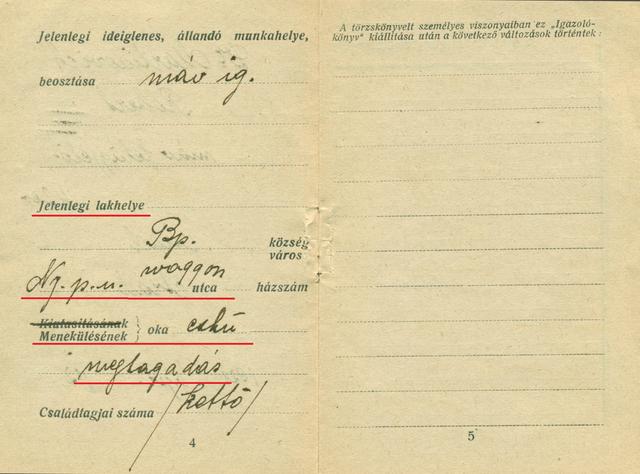 Jelenlegi ideiglenes, állandó munkahelye,
beosztása máv ig.
Jelenlegi lakhelye
Bp. község
város
Ny. p. u. waggon utca házszám
Kiutasításának
Menekülésének } oka eskü
megtagadás
Családtagjai száma /kettő/
4
A törzskönyvelt személyes viszonyaiban ez „Igazoló-
könyv" kiállítása után a következő változások történtek:
5